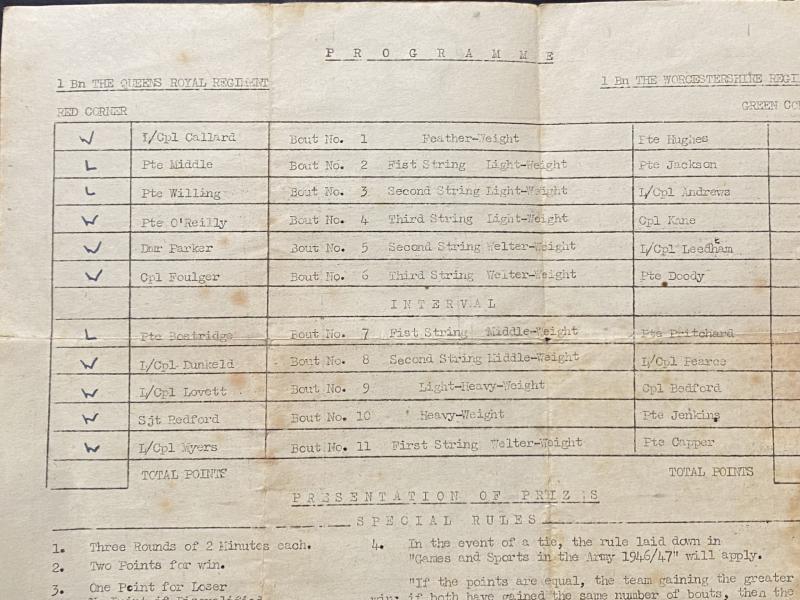 PROGRAMME
1 Bn THE QUEENS ROYAL REGIMENT 1 Bn THE WORCESTERSHIRE REGI
RED CORNER GREEN CO
W L/Cpl Callard Bout No. 1 Feather-Weight Pte Hughes
L Pte Middle Bout No. 2 Fist String Light-Weight Pte Jackson
L Pte Willing Bout No. 3 Second String Light-Weight L/Cpl Andrews
W Pte O'Reilly Bout No. 4 Third String Light-Weight Cpl Kane
W Dmr Parker Bout No. 5 Second String Welter-Weight L/Cpl Leedham
W Cpl Foulger Bout No. 6 Third String Welter-Weight Pte Doody
INTERVAL
L Pte Bostridge Bout No. 7 Fist String Middle-Weight Pte Pritchard
W L/Cpl Dunkeld Bout No. 8 Second String Middle-Weight L/Cpl Pearce
W L/Cpl Lovett Bout No. 9 Light-Heavy-Weight Cpl Bedford
W Sjt Redford Bout No. 10 Heavy-Weight Pte Jenkins
W L/Cpl Myers Bout No. 11 First String Welter-Weight Pte Capper
TOTAL POINTS TOTAL POINTS
PRESENTATION OF PRIZES
SPECIAL RULES
1. Three Rounds of 2 Minutes each.
2. Two Points for win.
3. One Point for Loser
No Point if Disqualified
4. In the event of a tie, the rule laid down in
"Games and Sports in the Army 1946/47" will apply.
"If the points are equal, the team gaining the greater
win; if both have gained the same number of bouts, then the